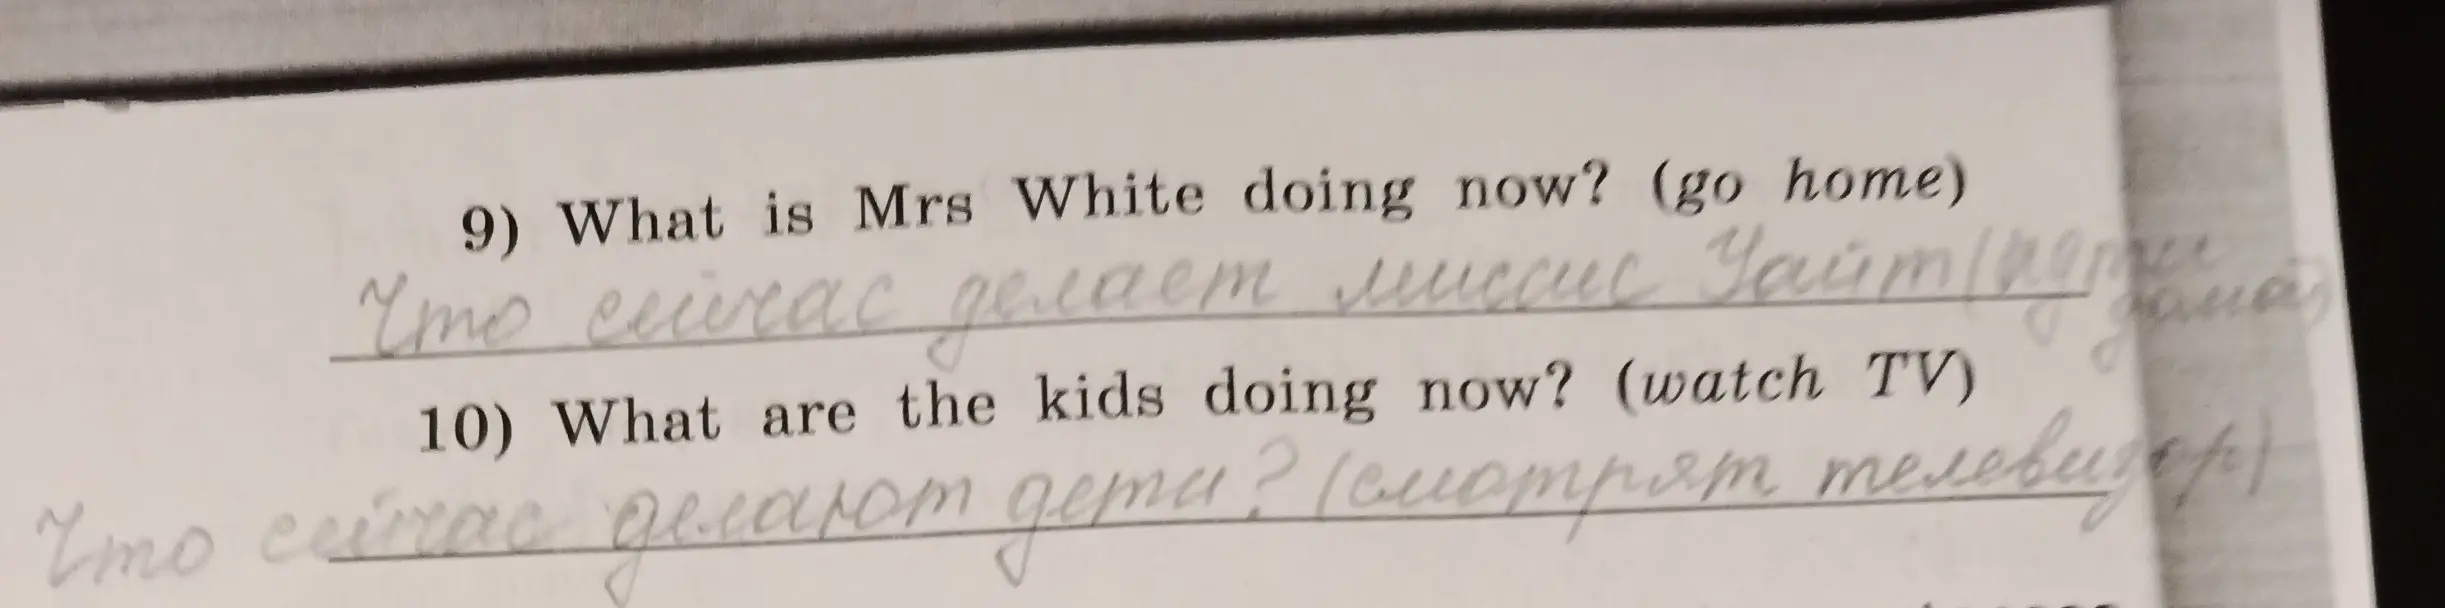 9) What is Mrs White doing now? (go home)
Что сейчас делает миссис Уайт (идти
домой)
10) What are the kids doing now? (watch TV)
Что сейчас делают дети? (смотрят телевизор)